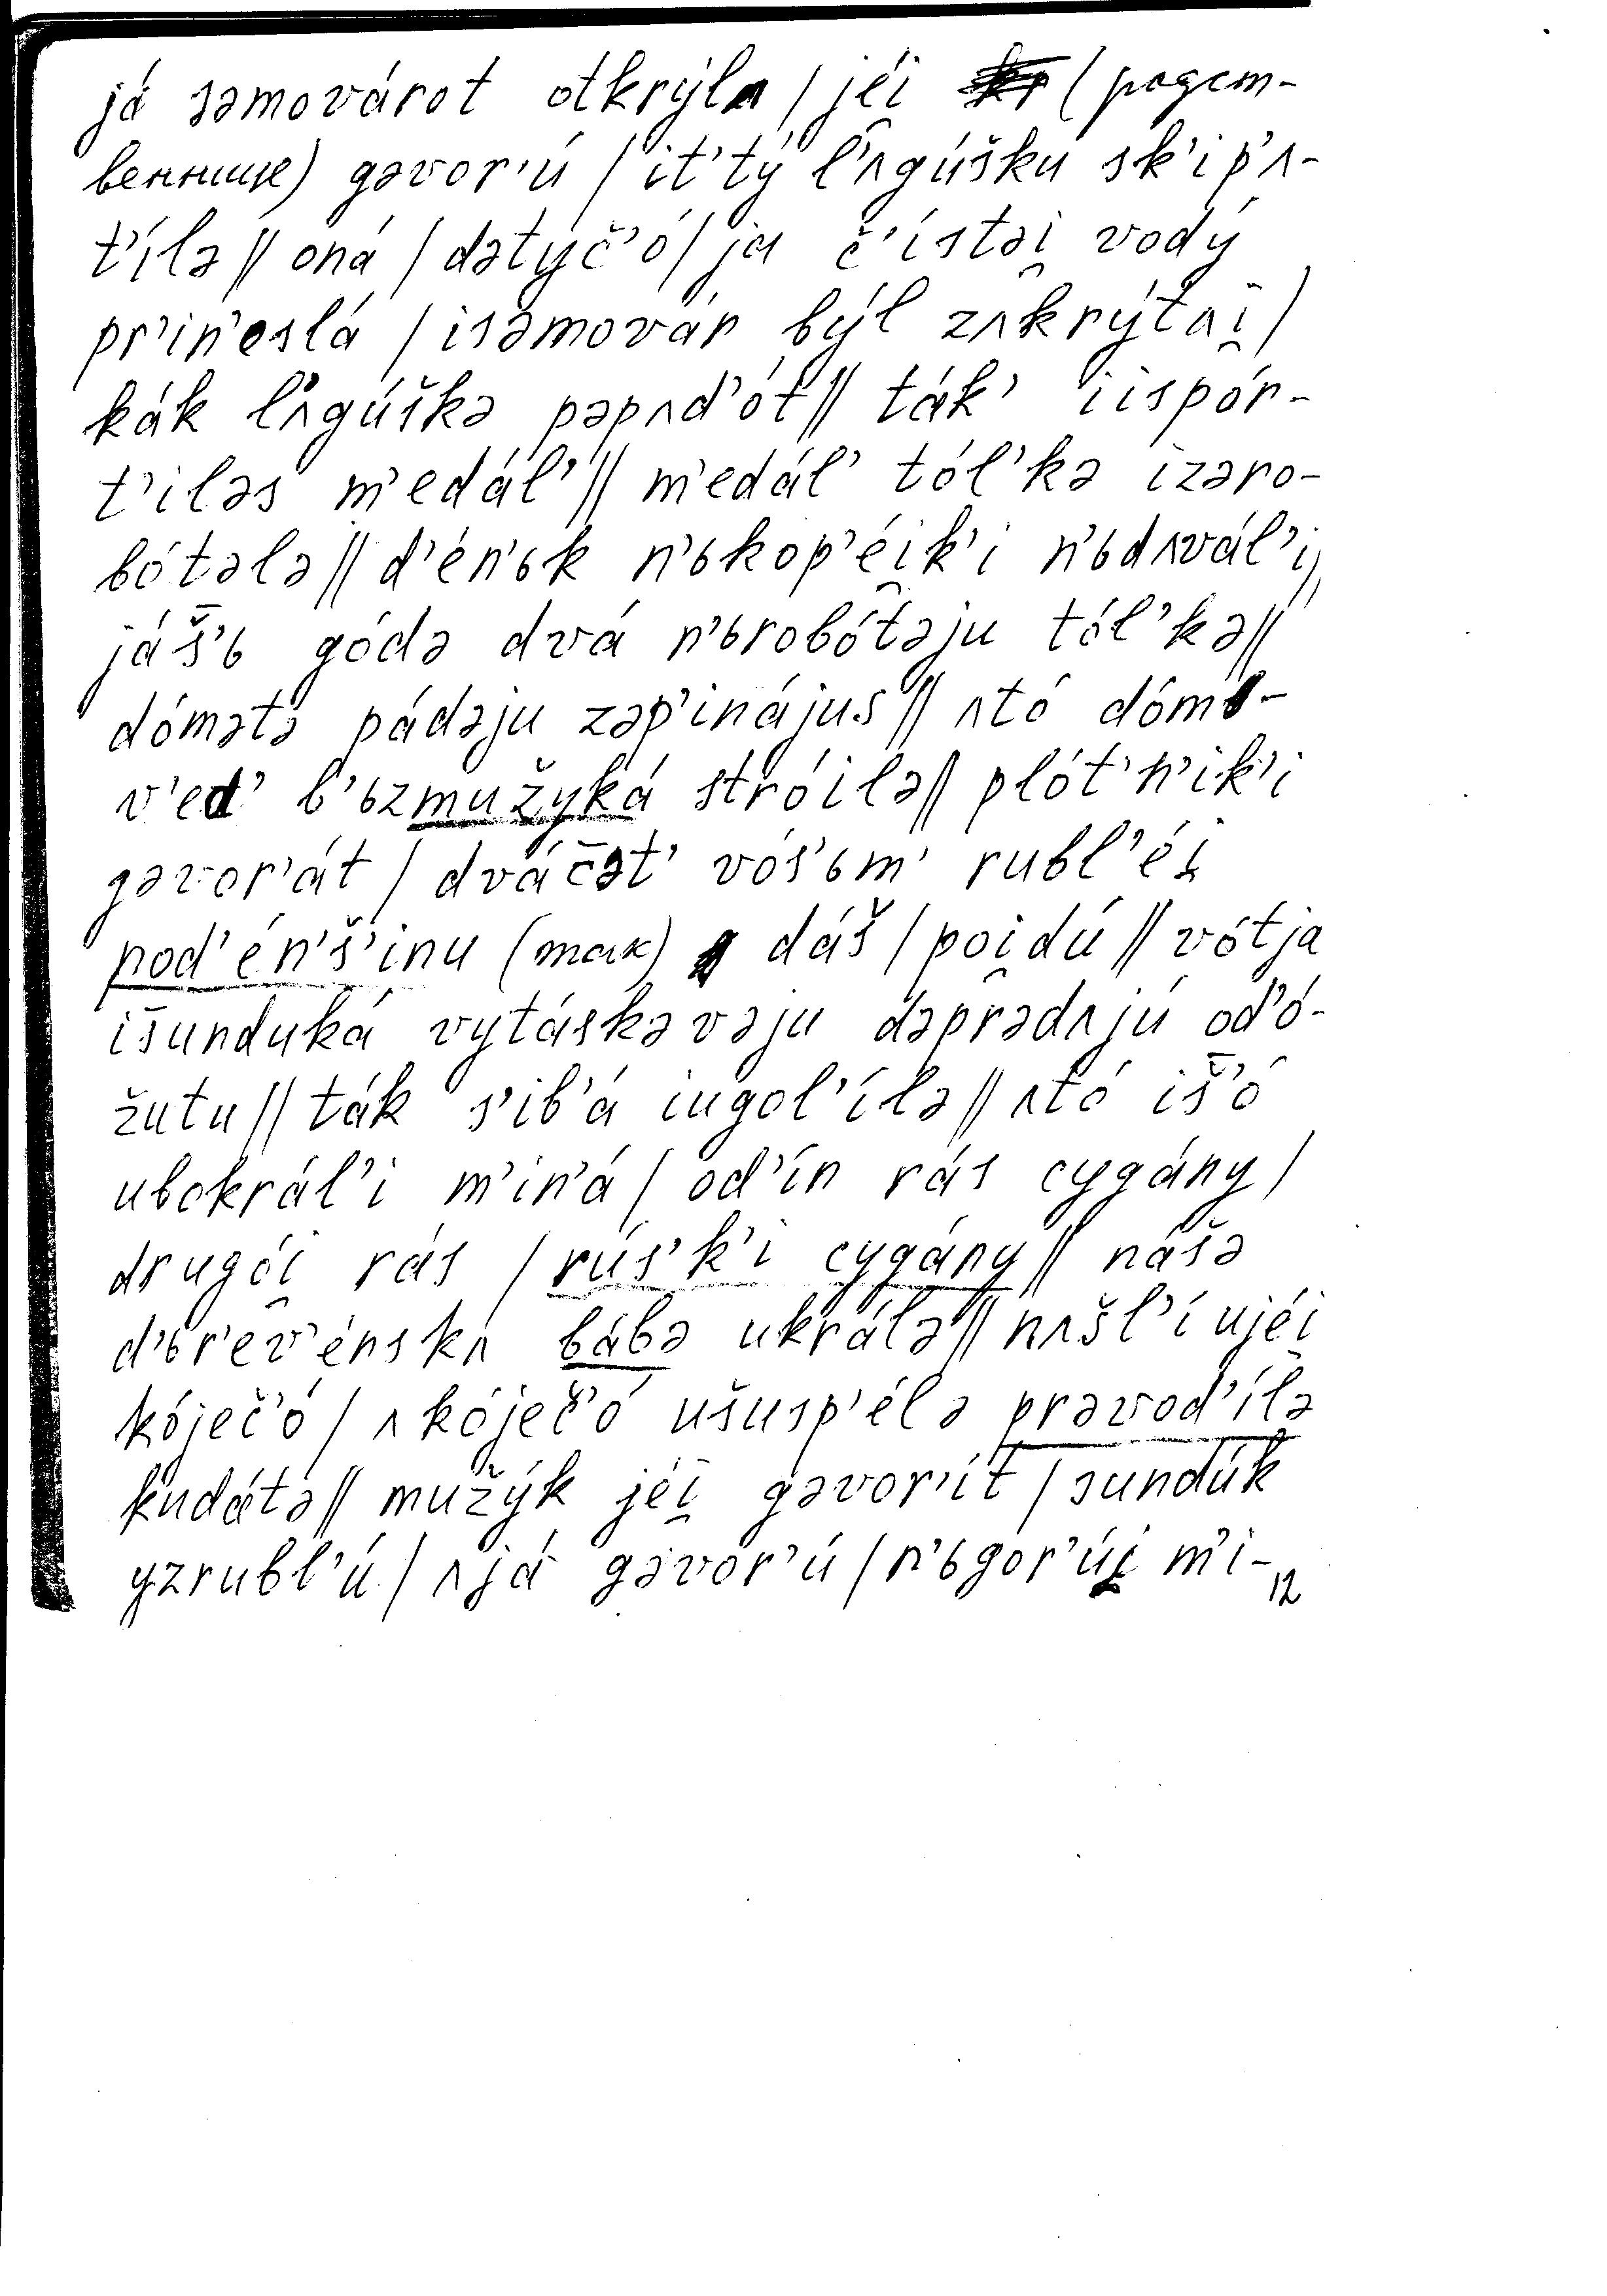 já səmovárot otkrýlʌ / jéi̯ (родст-
веннице) gəvor'ú / it'tý l'ʌgúšku sk'ip'ʌ-
t'ílə // oná / dətyč'ó / ja č'ístəi̯ vodý
pr'in'eslá / isəmovár býl zʌkrýtʌi̯ /
kák l'ʌgúškə pəpʌd'ót // ták' iispór-
t'iləs m'edál' // m'edál' tól'kə izəro-
bótələ // d'én'ьk n'ьkop'éi̯k'i n'ьdʌvál'i //
jáš̅'ь gódə dvá n'ьrobótəju tól'kə //
dómətə pádəju zəp'inájus // ʌtó dómь-
v'ed' b'ьzmužyká stróilə // plót'n'ik'i
gəvor'át / dvác̅ət' vós'ьm' rubl'éi̯
pod'én'š'inu (так) dáš / poi̯dú // vótja
iš̅unduká vytáskəvəju dəprədʌjú od'ó-
žutu // ták s'ib'á iugol'ílə // ʌtó iš̅'ó
ubokrál'i m'in'á / od'ín rás cygány /
drugói̯ rás / rús'k'i cygány // nášə
d'ьr'ev'énskʌ bábə ukrálə // nʌšl'í ujéi̯
kóječ'ó / ʌ kóječ'ó ušusp'élə prəvod'ílə
kudátə // mužýk jéi̯ gəvor'ít / sundúk
yzrubl'ú / ʌ já gəvor'ú / n'ьgor'úi̯ m'i-
12